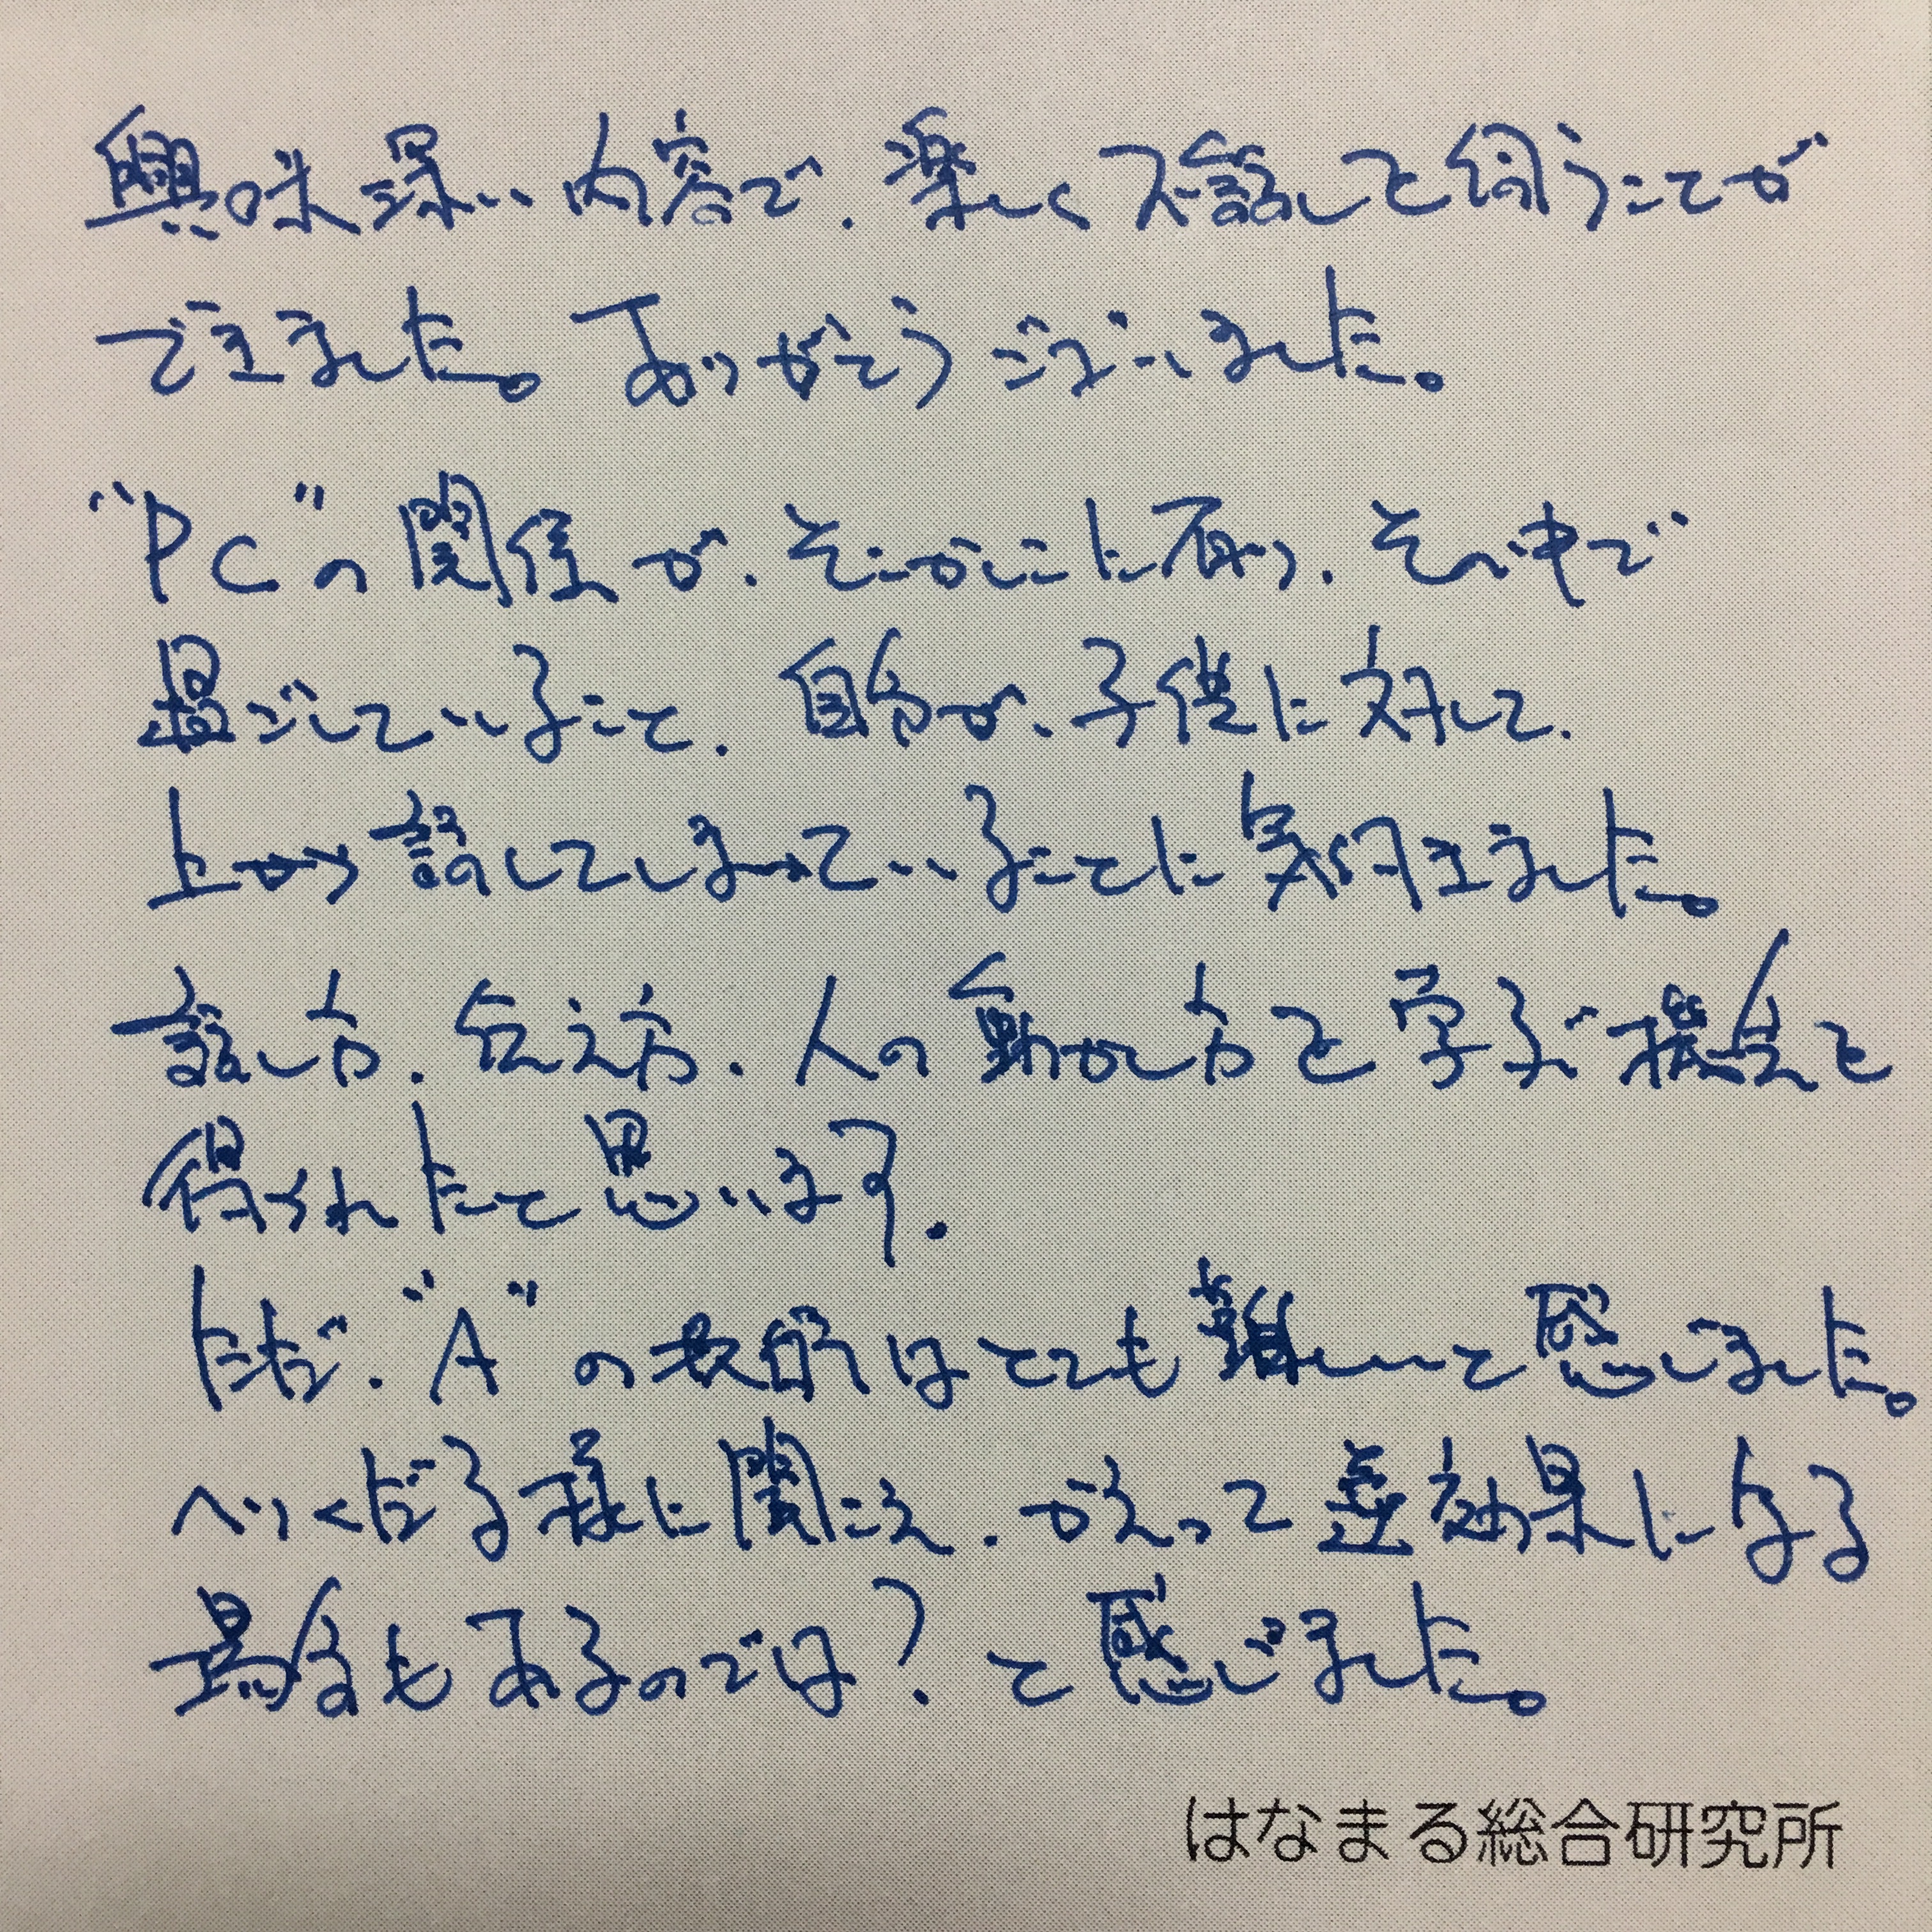 興味深い内容で、楽しくお話しを伺うことが
できました。ありがとうございました。
"PC"の関係が、そこかしこに有り、その中で
過ごしていること、自分が、子供に対して、
上から話してしまっていることに気付きました。
話し方、伝え方、人の動かし方を学ぶ機会を
得られたと思います。
ただ、"A"の表的はとても難しいと感じました。
へりくだる様に聞こえ、かえって逆効果になる
場合もあるのでは？と感じました。
はなまる総合研究所